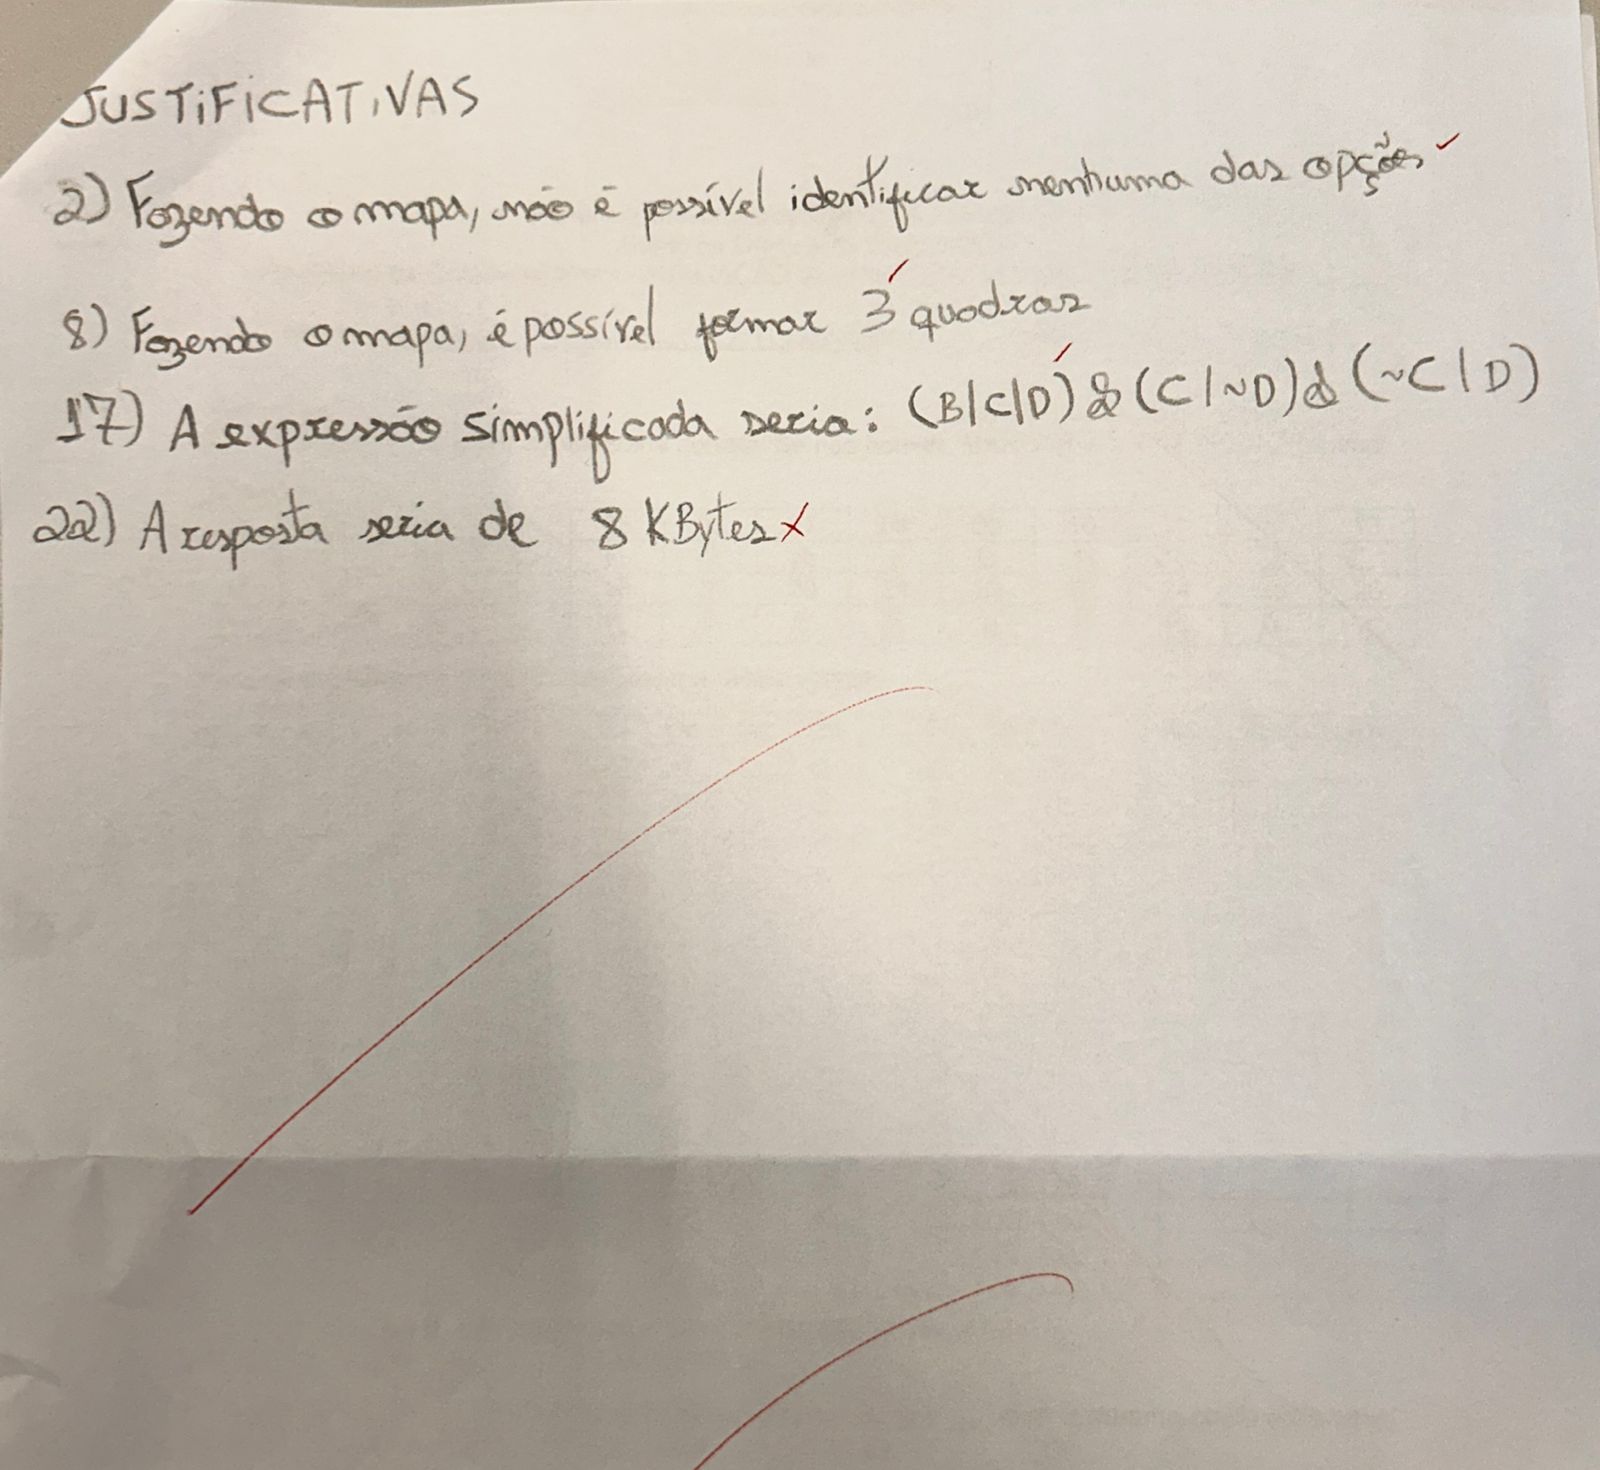 JUSTIFICATIVAS
2) Fazendo o mapa, não é possível identificar nenhuma das opções
8) Fazendo o mapa, é possível formar 3 quadras
17) A expressão simplificada seria: (B|C|D) & (C|~D) & (~C|D)
22) A resposta seria de 8 KBytes